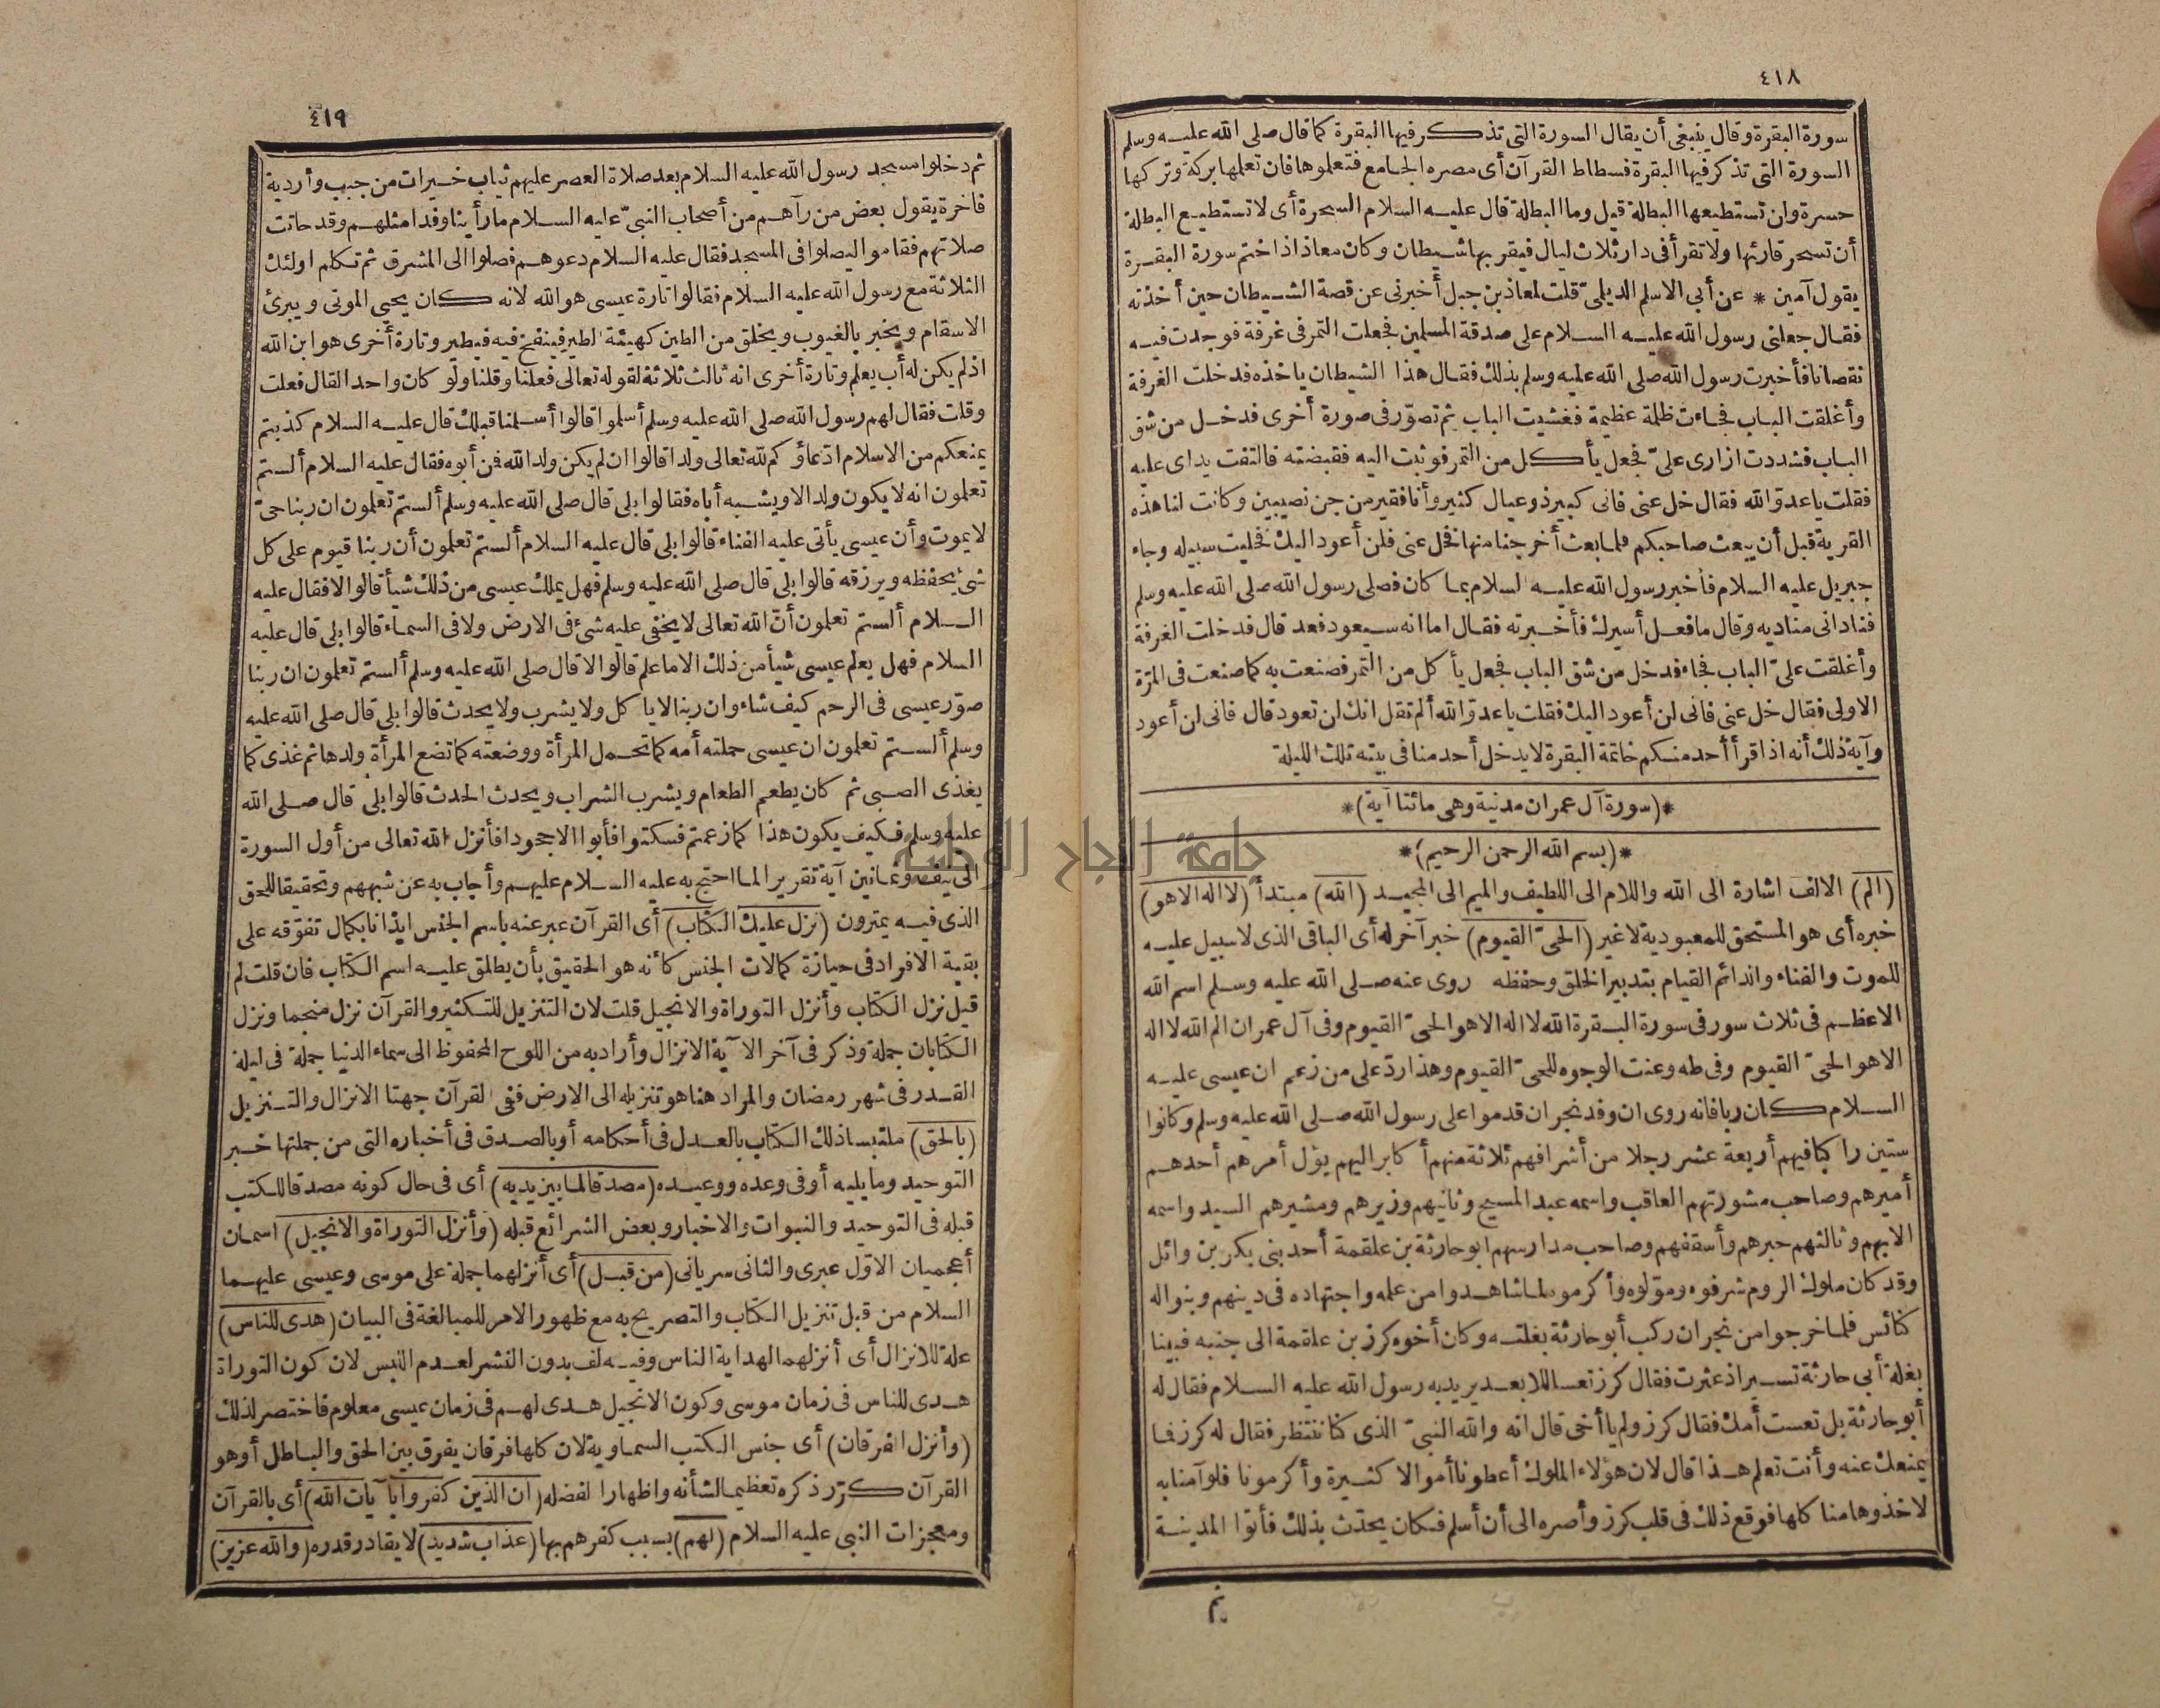 ٤١٨
سورة البقرة وقال ينبغى أن يقال السورة التى تذكر فيها البقرة كما قال صلى الله عليه وسلم
السورة التى تذكر فيها البقرة فسطاط القرآن أى مصره الجامع فتعلموها فان تعلمها بركة وتركها
حسرة وان تستطيعها البطلة قيل وما البطلة قال عليه السلام السحرة أى لا تستطيع البطلة
أن تسحر قارئها ولا تقرأ فى دار ثلاث ليال فيقربها شيطان وكان معاذ اذا ختم سورة البقرة
يقول آمين * عن أبى الاسلم الديلمى قلت لمعاذ بن جبل أخبرنى عن قصة الشيطان حين أخذته
فقال جعلنى رسول الله عليه السلام على صدقة المسلمين فجعلت التمر فى غرفة فوجدت فيه
نقصانا فأخبرت رسول الله صلى الله عليه وسلم بذلك فقال هذا الشيطان ياخذه فدخلت الغرفة
وأغلقت الباب فجاءت ظلمة عظيمة فغشيت الباب ثم تصوّر فى صورة أخرى فدخل من شق
الباب فشددت ازارى علىّ فجعل يأكل من التمر فوثبت اليه فقبضته فالتفت يداى عليه
فقلت ياعدوّ الله فقال خل عنى فانى كبير ذو عيال كثير وأنا فقير من جن نصيبين وكانت لنا هذه
القرية قبل أن يبعث صاحبكم فلما بعث أخرجنا منها فخل عنى فلن أعود اليك فخليت سبيله وجاء
جبريل عليه السلام فأخبر رسول الله عليه السلام بما كان فصلى رسول الله صلى الله عليه وسلم
فنادانى مناديه وقال ما فعل أسيرك فأخبرته فقال اما انه سيعود فعد قال فدخلت الغرفة
وأغلقت علىّ الباب فجاء فدخل من شق الباب فجعل يأكل من التمر فصنعت به كما صنعت فى المرّة
الاولى فقال خل عنى فانى لن أعود اليك فقلت ياعدوّ الله ألم تقل انك لن تعود قال فانى لن أعود
وآية ذلك أنه اذا قرأ أحد منكم خاتمة البقرة لا يدخل أحد منا فى بيته تلك الليلة
*(سورة آل عمران مدنية وهى مائتا آية)*
*(بسم الله الرحمن الرحيم)*
(الم) الالف اشارة الى الله واللام الى اللطيف والميم الى المجيد (الله) مبتدأ (لا اله الا هو)
خبره أى هو المستحق للمعبودية لا غير (الحىّ القيوم) خبر آخر له أى الباقى الذى لا سبيل عليه
للموت والفناء والدائم القيام بتدبير الخلق وحفظه روى عنه صلى الله عليه وسلم اسم الله
الاعظم فى ثلاث سور فى سورة البقرة الله لا اله الا هو الحىّ القيوم وفى آل عمران الم الله لا اله
الا هو الحىّ القيوم وفى طه وعنت الوجوه للحىّ القيوم وهذا ردّ على من زعم ان عيسى عليه
السلام كان ربا فانه روى ان وفد نجران قدموا على رسول الله صلى الله عليه وسلم وكانوا
ستين راكبا فيهم أربعة عشر رجلا من أشرافهم ثلاثة منهم أكابر اليهم يؤل أمرهم أحدهم
أميرهم وصاحب مشورتهم العاقب واسمه عبد المسيح وثانيهم وزيرهم ومشيرهم السيد واسمه
الايهم وثالثهم حبرهم وأسقفهم وصاحب مدارسهم ابو حارثة بن علقمة أحد بنى بكر بن وائل
وقد كان ملوك الروم شرفوه وموّلوه وأكرموه لما شاهدوا من علمه واجتهاده فى دينهم وبنوا له
كنائس فلما خرجوا من نجران ركب أبو حارثة بغلته وكان أخوه كرز بن علقمة الى جنبه فبينا
بغلة أبى حارثة تسير اذ عثرت فقال كرز تعسا للابعد يريد به رسول الله عليه السلام فقال له
أبو حارثة بل تعست أمك فقال كرز ولم يا أخى قال انه والله النبىّ الذى كنا ننتظر فقال له كرز فما
يمنعك عنه وأنت تعلم هذا قال لان هؤلاء الملوك أعطونا أموالا كثيرة وأكرمونا فلو آمنا به
لاخذوها منا كلها فوقع ذلك فى قلب كرز وأصره الى أن أسلم فكان يحدّث بذلك فأتوا المدينة
ثم
٤١٩
ثم دخلوا مسجد رسول الله عليه السلام بعد صلاة العصر عليهم ثياب خيرات من جبب وأردية
فاخرة يقول بعض من رآهم من أصحاب النبىّ عليه السلام ما رأينا وفدا مثلهم وقد حانت
صلاتهم فقاموا ليصلوا فى المسجد فقال عليه السلام دعوهم فصلوا الى المشرق ثم تكلم اولئك
الثلاثة مع رسول الله عليه السلام فقالوا تارة عيسى هو الله لانه كان يحيى الموتى ويبرئ
الاسقام ويخبر بالغيوب ويخلق من الطين كهيئة الطير فينفخ فيه فيطير وتارة أخرى هو ابن الله
اذ لم يكن له أب يعلم وتارة أخرى انه ثالث ثلاثة لقوله تعالى فعلنا وقلنا ولو كان واحدا لقال فعلت
وقلت فقال لهم رسول الله صلى الله عليه وسلم أسلموا قالوا أسلمنا قبلك قال عليه السلام كذبتم
يمنعكم من الاسلام ادّعاؤكم لله تعالى ولدا قالوا ان لم يكن ولد الله فمن أبوه فقال عليه السلام ألستم
تعلمون انه لا يكون ولد الا ويشبه أباه فقالوا بلى قال صلى الله عليه وسلم ألستم تعلمون ان ربنا حىّ
لا يموت وأن عيسى يأتى عليه الفناء قالوا بلى قال عليه السلام ألستم تعلمون أن ربنا قيوم على كل
شئ يحفظه ويرزقه قالوا بلى قال صلى الله عليه وسلم فهل يملك عيسى من ذلك شيأ قالوا لا فقال عليه
السلام ألستم تعلمون أنّ الله تعالى لا يخفى عليه شئ فى الارض ولا فى السماء قالوا بلى قال عليه
السلام فهل يعلم عيسى شيأ من ذلك الا ما علم قالوا لا قال صلى الله عليه وسلم ألستم تعلمون ان ربنا
صوّر عيسى فى الرحم كيف شاء وان ربنا لا يأكل ولا يشرب ولا يحدث قالوا بلى قال صلى الله عليه
وسلم ألستم تعلمون ان عيسى حملته أمه كما تحمل المرأة ووضعته كما تضع المرأة ولدها ثم غذى كما
يغذى الصبى ثم كان يطعم الطعام ويشرب الشراب ويحدث الحدث قالوا بلى قال صلى الله
عليه وسلم فكيف يكون هذا كما زعمتم فسكتوا فأبوا الا جحودا فأنزل الله تعالى من أول السورة
الى نيف وثمانين آية تقريرا لما احتج به عليه السلام عليهم وأجاب به عن شبههم وتحقيقا للحق
الذى فيه يمترون (نزل عليك الكتاب) أى القرآن عبر عنه باسم الجنس ايذانا بكمال تفوّقه على
بقية الافراد فى حيازة كمالات الجنس كأنه هو الحقيق بأن يطلق عليه اسم الكتاب فان قلت لم
قيل نزل الكتاب وأنزل التوراة والانجيل قلت لان التنزيل للتكثير والقرآن نزل منجما ونزل
الكتابان جملة وذكر فى آخر الآية الانزال وأراد به من اللوح المحفوظ الى سماء الدنيا جملة فى ليلة
القدر فى شهر رمضان والمراد هنا هو تنزيله الى الارض ففى القرآن جهتا الانزال والتنزيل
(بالحق) ملتبسا ذلك الكتاب بالعدل فى أحكامه أو بالصدق فى أخباره التى من جملتها خبر
التوحيد وما يليه أو فى وعده ووعيده (مصدقا لما بين يديه) أى فى حال كونه مصدقا للكتب
قبله فى التوحيد والنبوات والاخبار وبعض الشرائع قبله (وأنزل التوراة والانجيل) اسمان
أعجميان الاوّل عبرى والثانى سريانى (من قبل) أى أنزلهما جملة على موسى وعيسى عليهما
السلام من قبل تنزيل الكتاب والتصريح به مع ظهور الامر للمبالغة فى البيان (هدى للناس)
علة للانزال أى أنزلهما لهداية الناس وفيه لف بدون النشر لعدم اللبس لان كون التوراة
هدى للناس فى زمان موسى وكون الانجيل هدى لهم فى زمان عيسى معلوم فاختصر لذلك
(وأنزل الفرقان) أى جنس الكتب السماوية لان كلها فرقان يفرق بين الحق والباطل أو هو
القرآن كرّر ذكره تعظيما لشأنه واظهارا لفضله (ان الذين كفروا بآيات الله) أى بالقرآن
ومعجزات النبى عليه السلام (لهم) بسبب كفرهم بها (عذاب شديد) لا يقادر قدره (والله عزيز)
جامعة النجاح الوطنية